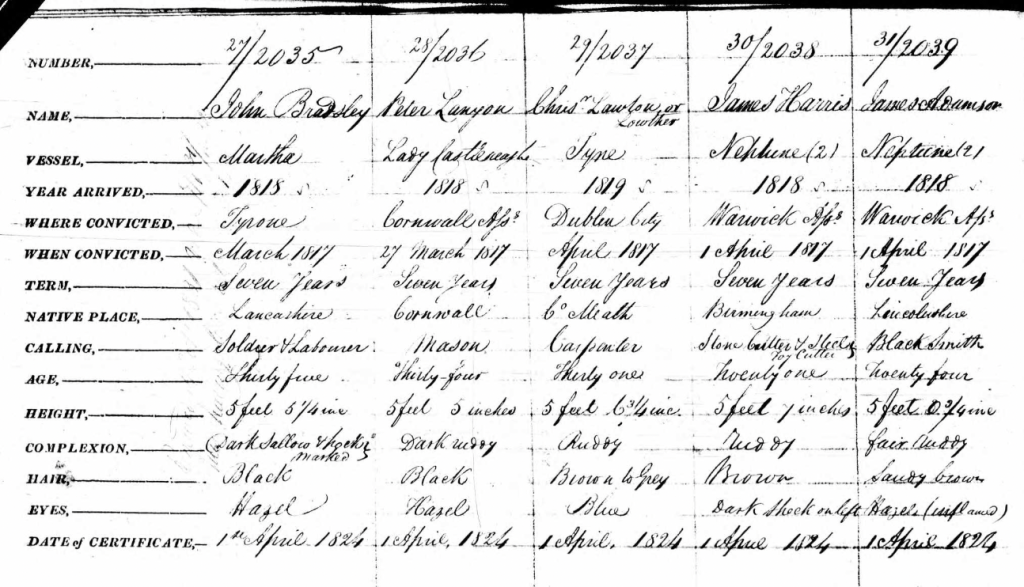 NUMBER, 27/2035 28/2036 29/2037 30/2038 31/2039
NAME, John Bradsley Peter Lanyon Chrisr. Lawton or Lowther James Harris James Adamson
VESSEL, Martha Lady Castlereagh Tyne Neptune (2) Neptune (2)
YEAR ARRIVED, 1818 1818 1819 1818 1818
WHERE CONVICTED, Tyrone Cornwall Ass Dublin City Warwick Ass Warwick Ass
WHEN CONVICTED, March 1817 27 March 1817 April 1817 1 April 1817 1 April 1817
TERM, Seven Years Seven Years Seven Years Seven Years Seven Years
NATIVE PLACE, Lancashire Cornwall Co Meath Birmingham Lincolnshire
CALLING, Soldier & Labourer Mason Carpenter Stone Cutter & Steel Toy Cutter Black Smith
AGE, Thirty five Thirty four Thirty one Twenty one Twenty four
HEIGHT, 5 feet 5 1/4 inc 5 feet 5 inches 5 feet 6 3/4 inc. 5 feet 7 inches 5 feet 0 3/4 inc
COMPLEXION, Dark Sallow & Pock marked Dark ruddy Ruddy Ruddy fair ruddy
HAIR, Black Black Brown to Grey Brown Sandy brown
EYES, Hazel Hazel Blue Dark on left Hazel (inflamed)
DATE of CERTIFICATE, 1st April 1824 1 April, 1824 1 April, 1824 1 April 1824 1 April 1824